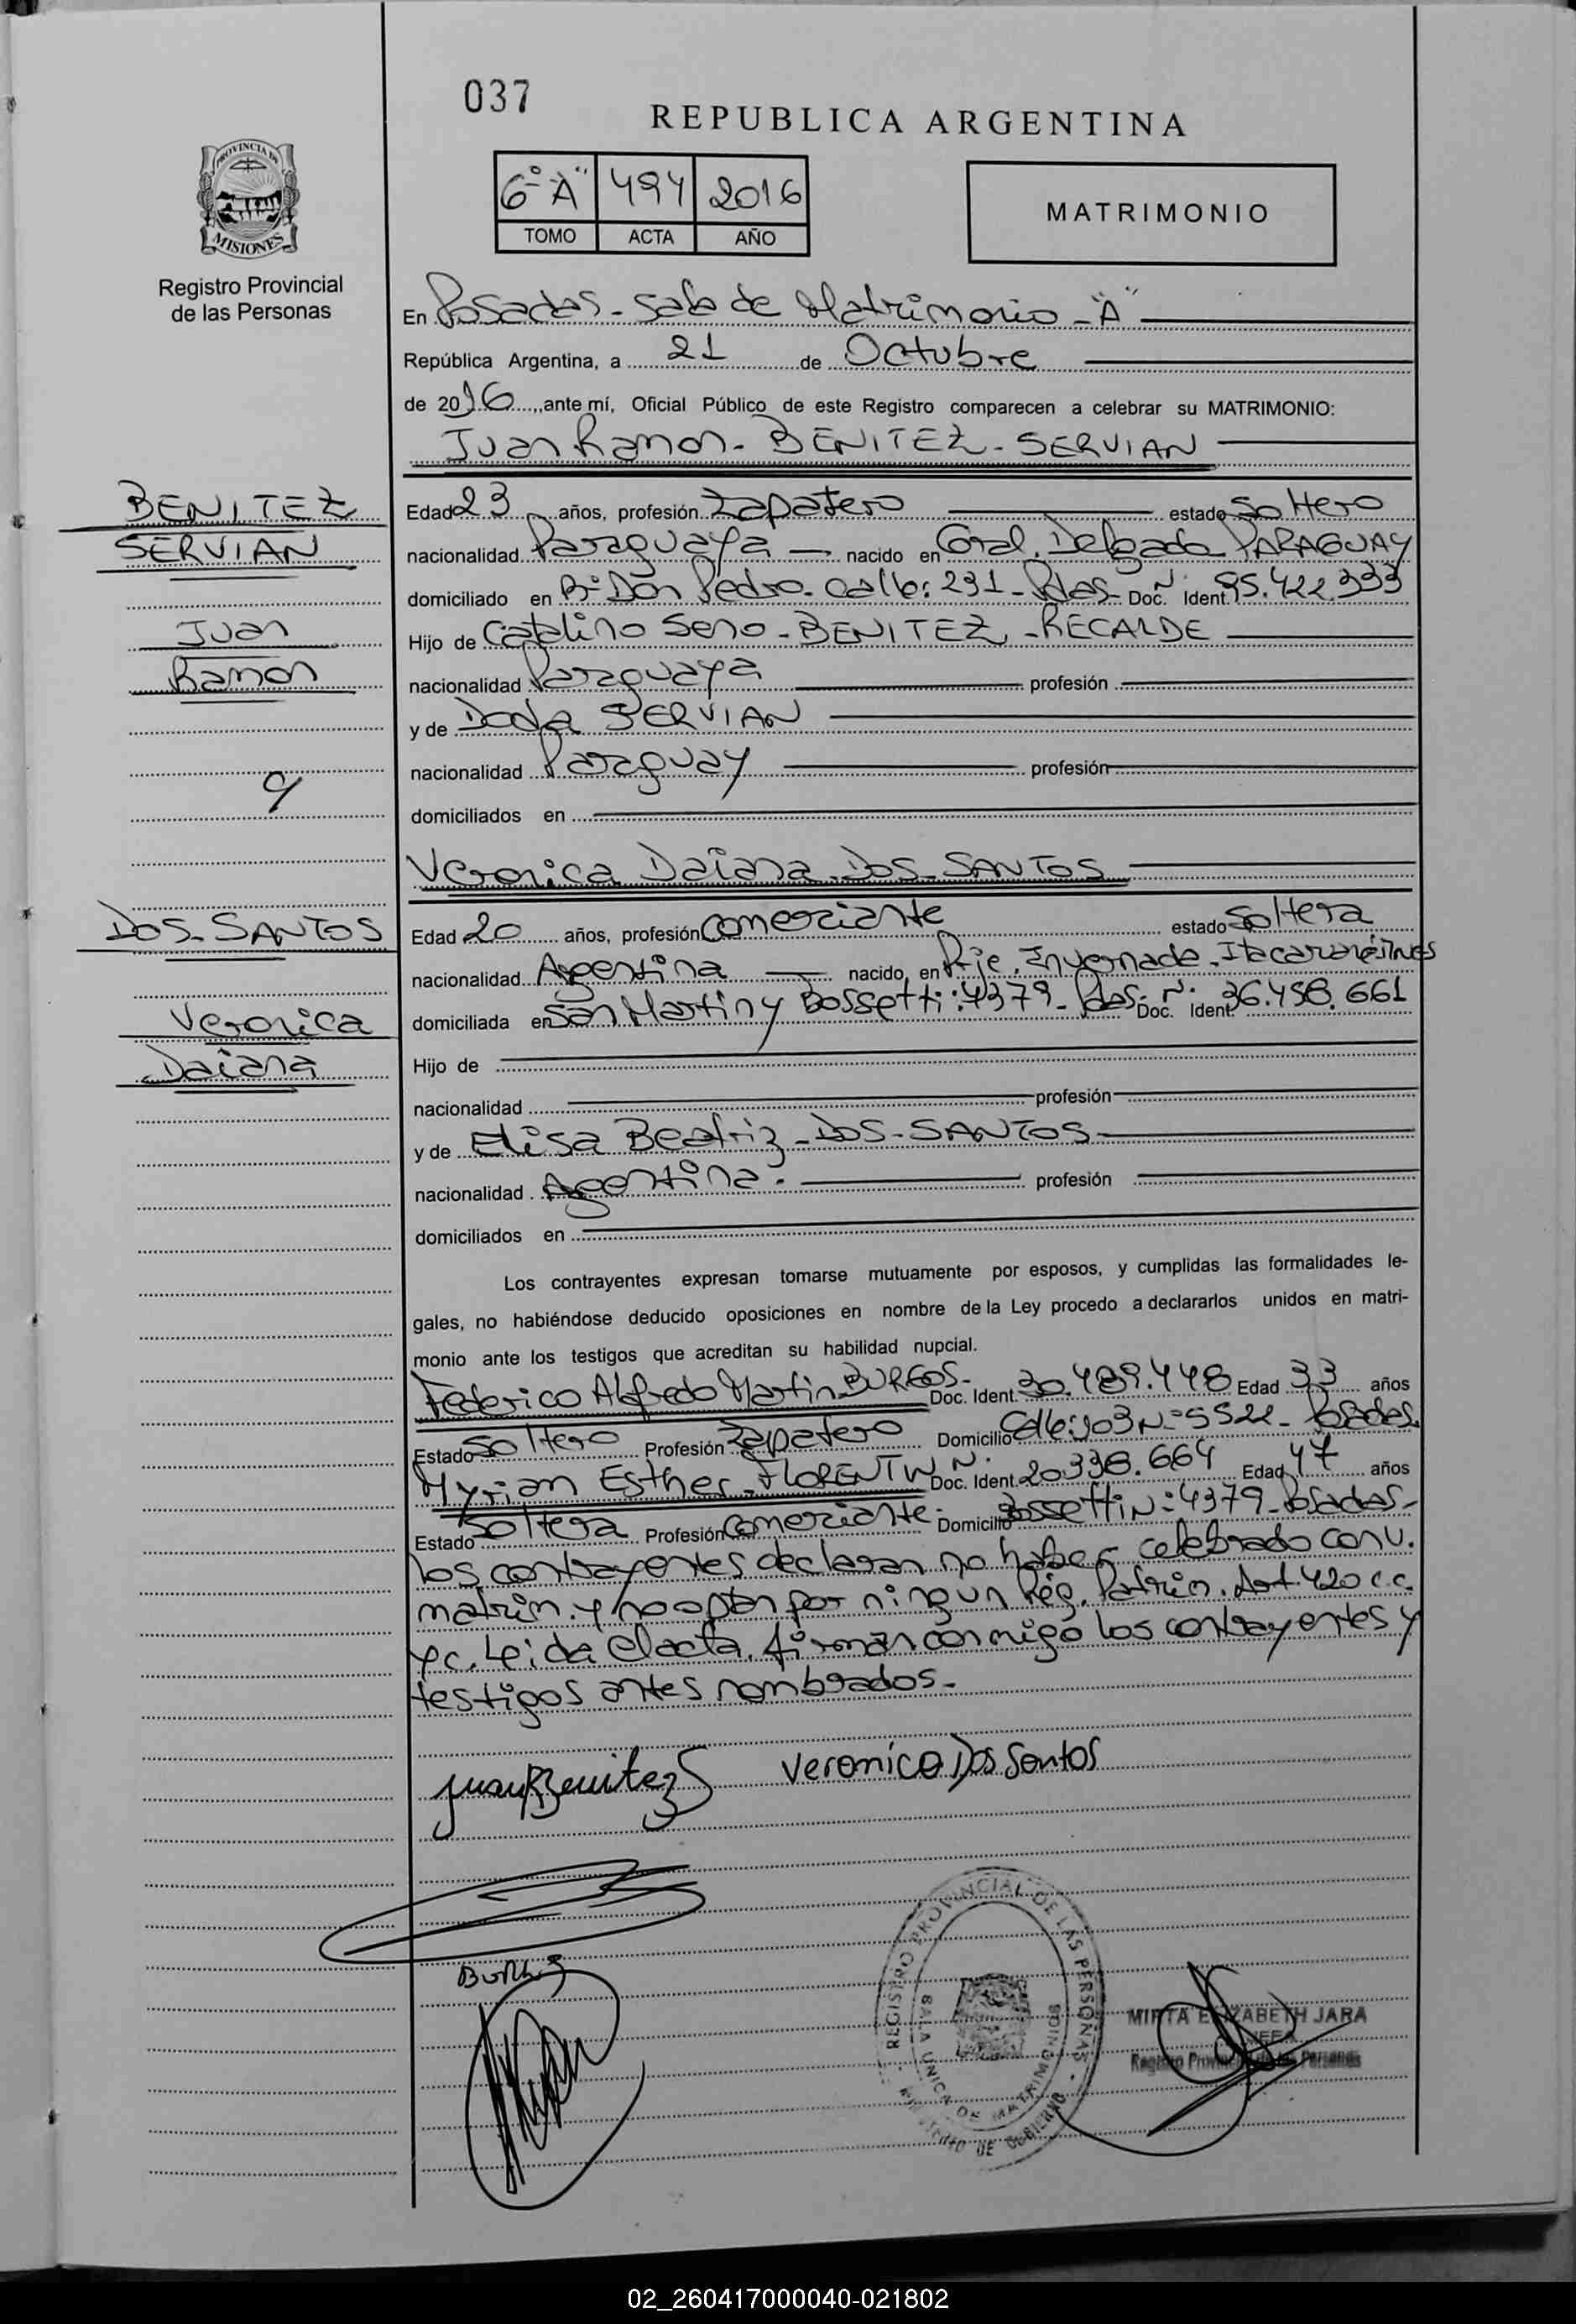 037
REPUBLICA ARGENTINA
6º "A" 494 2016
TOMO ACTA AÑO
MATRIMONIO
PROVINCIA DE
MISIONES
Registro Provincial
de las Personas
En Posadas - Sala de Matrimonio - "A"
República Argentina, a 21 de Octubre
de 2016, ante mí, Oficial Público de este Registro comparecen a celebrar su MATRIMONIO:
Juan Ramon - BENITEZ - SERVIAN
BENITEZ
SERVIAN
Juan
Ramon
Edad 23 años, profesión Zapatero estado Soltero
nacionalidad Paraguaya nacido en Gral. Delgado PARAGUAY
domiciliado en Bº Don Pedro. Calle: 231 - Pdas - Doc. Nº Ident. 95.422.333
Hijo de Catalino Seno - BENITEZ - RECALDE
nacionalidad Paraguaya profesión
y de SERVIAN
nacionalidad Paraguay profesión
domiciliados en
Veronica Daiana DOS - SANTOS
DOS - SANTOS
Veronica
Daiana
Edad 20 años, profesión Comerciante estado Soltera
nacionalidad Argentina nacido en Pje. Invernada - Itacaruaré Mnes
domiciliada en San Martin y Bossetti: 4379 - Pdas - Doc. Nº Ident. 36.458.661
Hijo de
nacionalidad profesión
y de Elisa Beatriz - DOS - SANTOS
nacionalidad Argentina. profesión
domiciliados en
Los contrayentes expresan tomarse mutuamente por esposos, y cumplidas las formalidades le-
gales, no habiéndose deducido oposiciones en nombre de la Ley procedo a declararlos unidos en matri-
monio ante los testigos que acreditan su habilidad nupcial.
Federico Alfredo Martin BURGOS - Doc. Ident. 30.489.448 Edad 33 años
Estado Soltero Profesión Zapatero Domicilio Calle: 103 Nº 5522 - Posadas.
Myrian Esther - FLORENTIN Doc. Ident. 20.338.664 Edad 47 años
Estado Soltera Profesión Comerciante - Domicilio Bossetti Nº 4379 - Posadas -
los contrayentes declaran no haber celebrado conv.
matrim. y no optan por ningun Rég. Patrim. Art. 420 c.c.
yc. Leida el acta, firman conmigo los contrayentes y
testigos antes nombrados -
Juan Benitez S Veronica Dos Santos
REGISTRO PROVINCIAL DE LAS PERSONAS
SALA UNICA DE MATRIMONIOS
MINISTERIO DE GOBIERNO
MIRTA ELIZABETH JARA
JEFA
Registro Provincial de las Personas
02_260417000040-021802